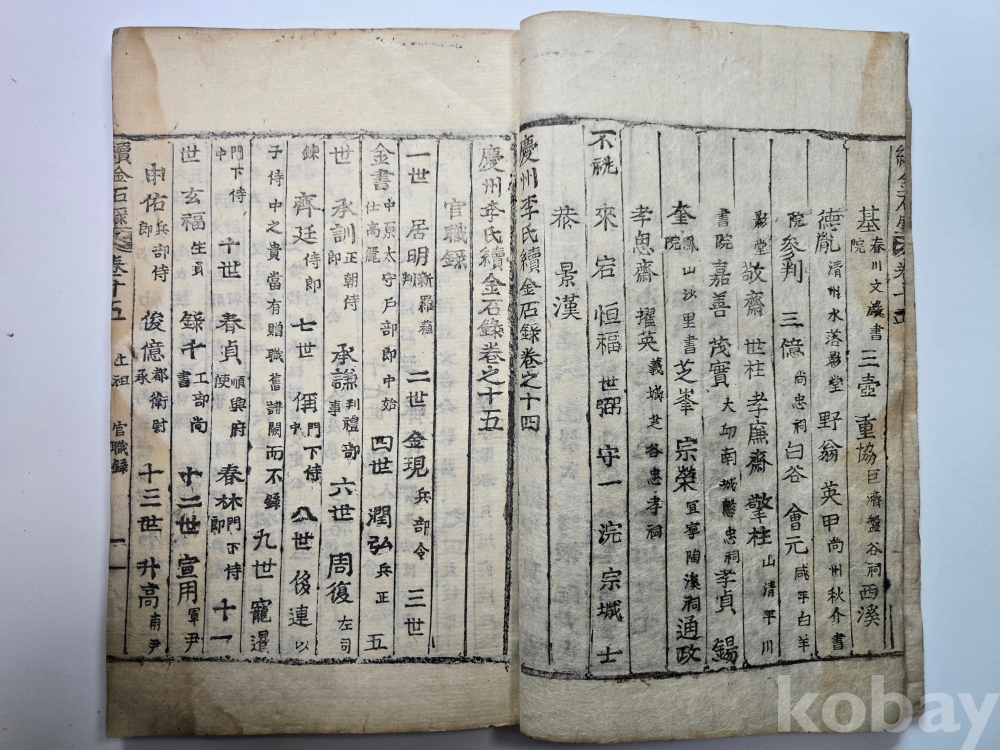 基 春川文巖書院 三壺 重協 巨濟盤谷祠 西溪
德胤 清州水落影堂 野翁 英甲 尚州秋介書
院 參判 三億 尚忠祠 白谷 會元 咸平白羊
影堂 敬齋 世柱 孝廉齋 擎柱 山清平川
書院 嘉善 茂實 大邱南城愍忠祠 孝貞 錫
奎 鳳山沙里書院 芝峯 宗榮 宜寧陶溪祠 通政
孝思齋 擢英 義城 忠孝祠
不祧 來 宕 恒福 世弼 守一 浣 宗城 士
恭 景漢
慶州李氏續金石錄卷之十四
慶州李氏續金石錄卷之十五
官職錄
一世 居明 二世 金現 兵部令 三世
金書 中原太守戶部郎中始仕高麗 四世 潤弘 兵正 五
世 承訓 正朝侍郎 承謙 判禮部事 六世 周復 左司
諫 齊廷 侍郎 七世 偁 門下侍中 八世 侈連 以
子侍中之貴當有贈職舊譜闕而不錄 九世 寵暹
門下侍中 十世 春貞 順興府使 春林 門下侍郎 十一
世 玄福 生員 錄千 工部尚書 十二世 宣用 軍尹
申佑 兵部侍郎 後億 都衛尉丞 十三世 升高 南尹
續金石錄 卷十五 上祖 官職錄 一
kobay